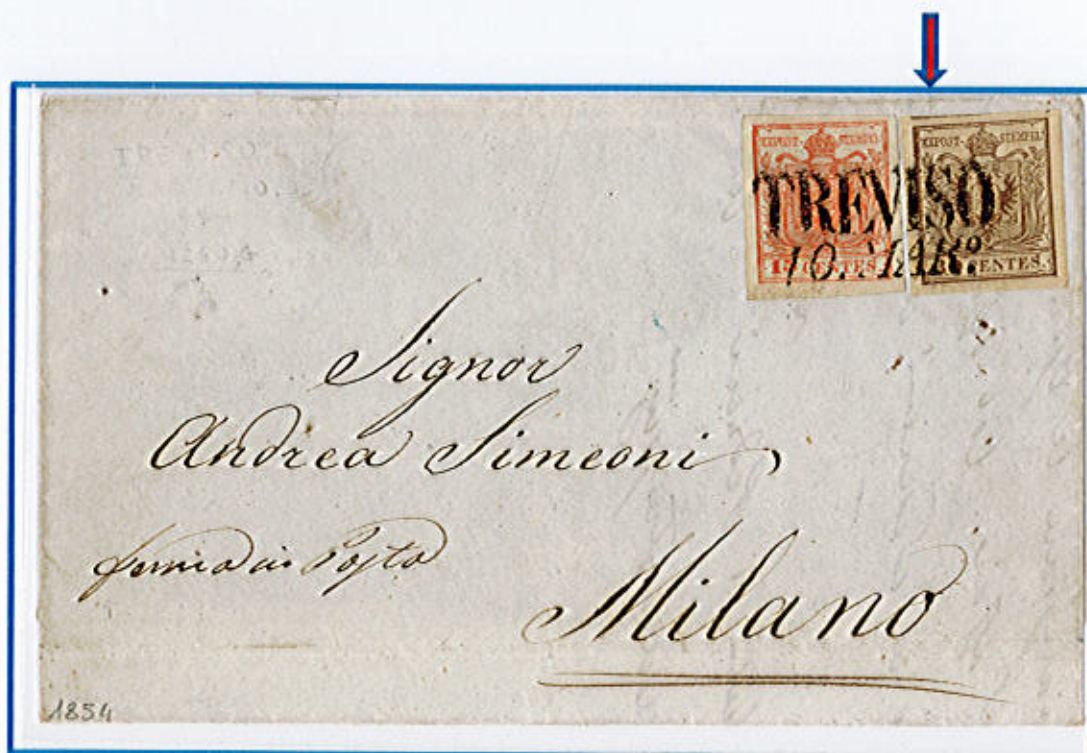 K.K.POST-STEMPEL
K.K.POST-STEMPEL
TREVISO
10. MAR.º
15 CENTES.
30 CENTES.
Signor
Andrea Simeoni
ferma in Posta
Milano
1854